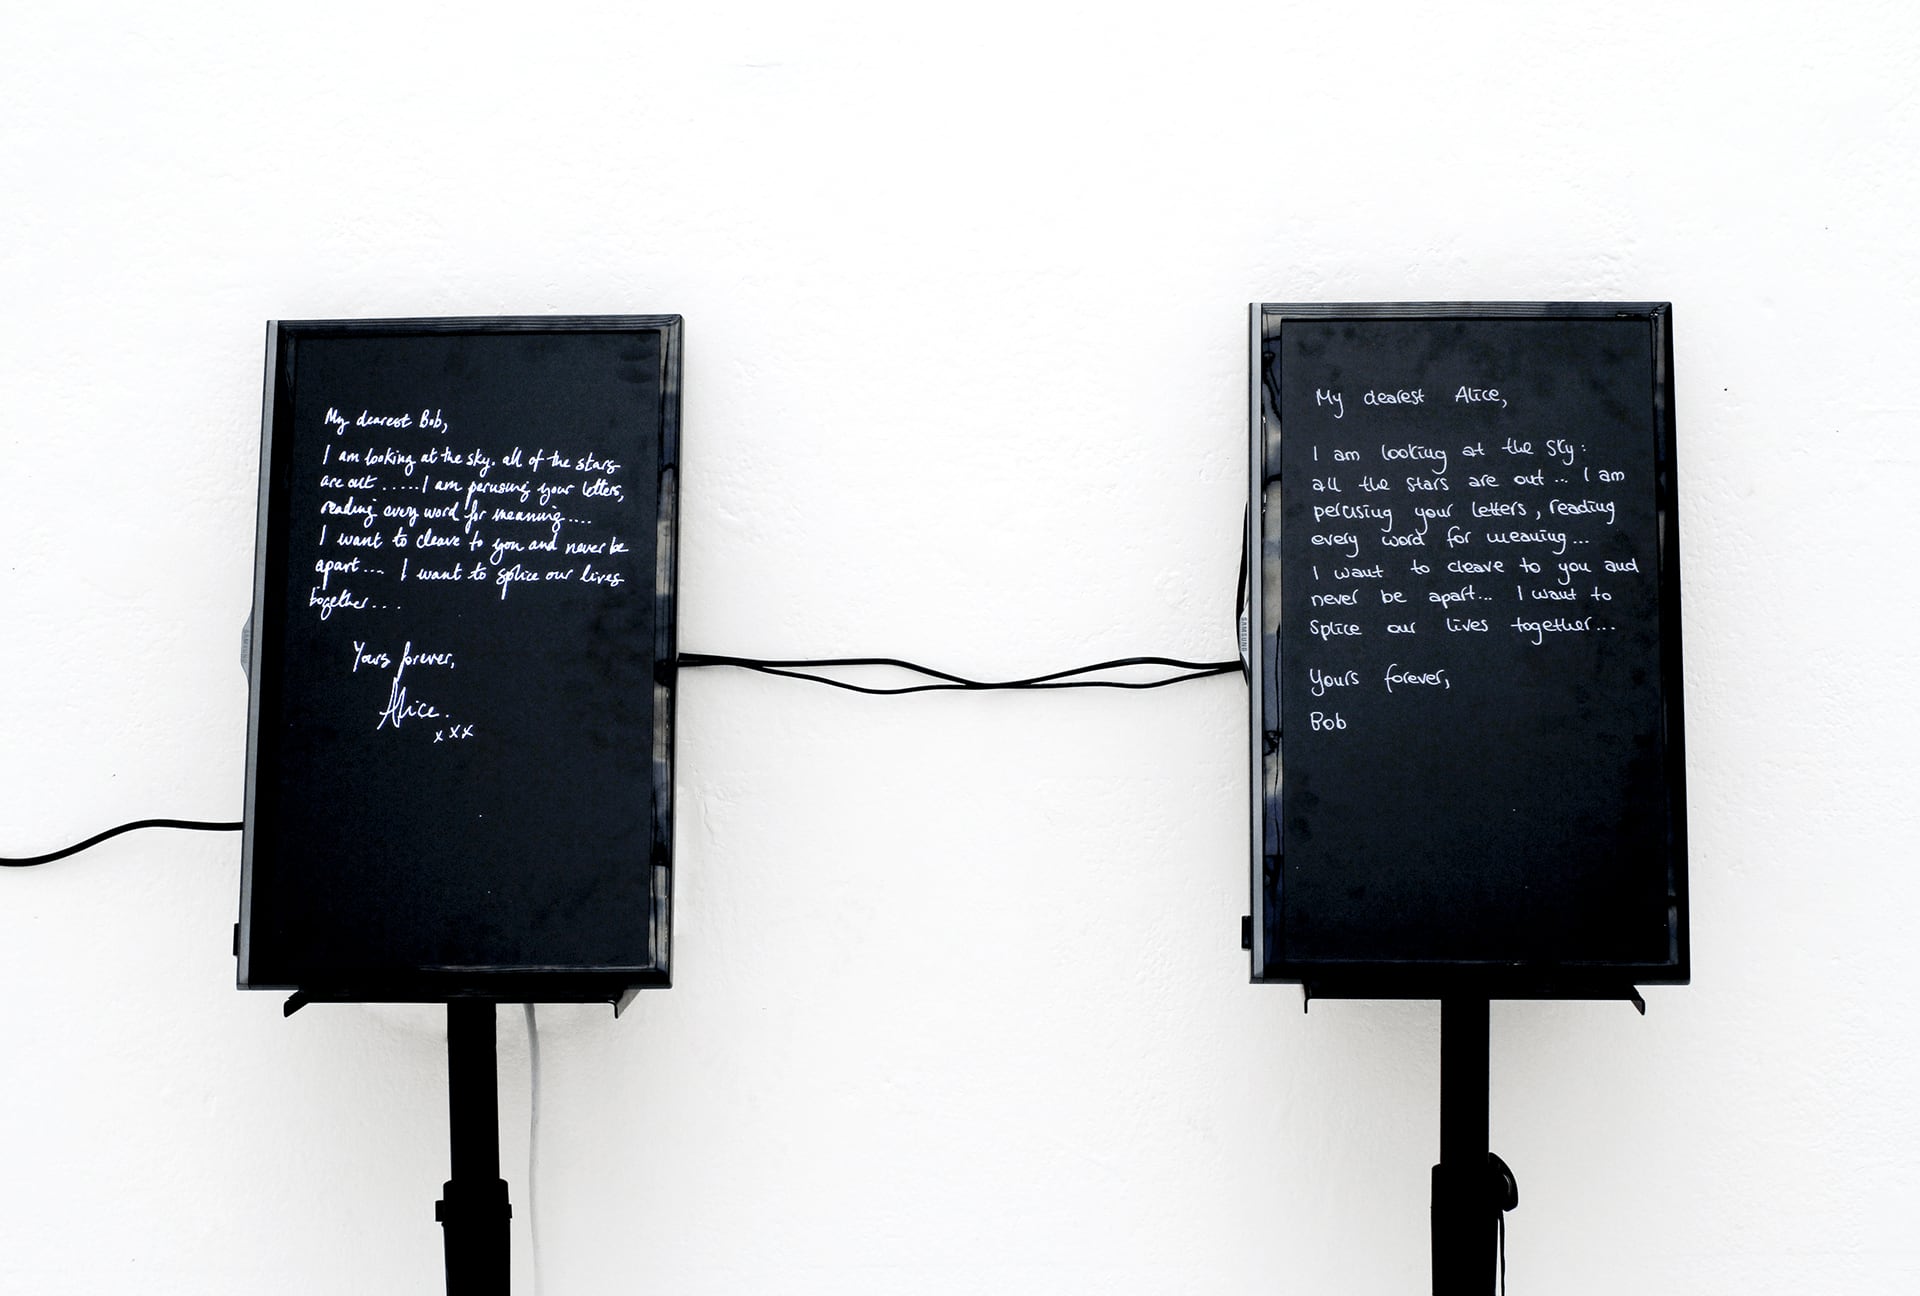 My dearest Bob,
I am looking at the sky. all of the stars
are out ..... I am perusing your letters,
reading every word for meaning....
I want to cleave to you and never be
apart.... I want to splice our lives
together...
Yours forever,
Alice.
xxx
SAMSUNG
My dearest Alice,
I am looking at the sky:
all the stars are out ... I am
perusing your letters, reading
every word for meaning...
I want to cleave to you and
never be apart... I want to
splice our lives together...
Yours forever,
Bob
SAMSUNG